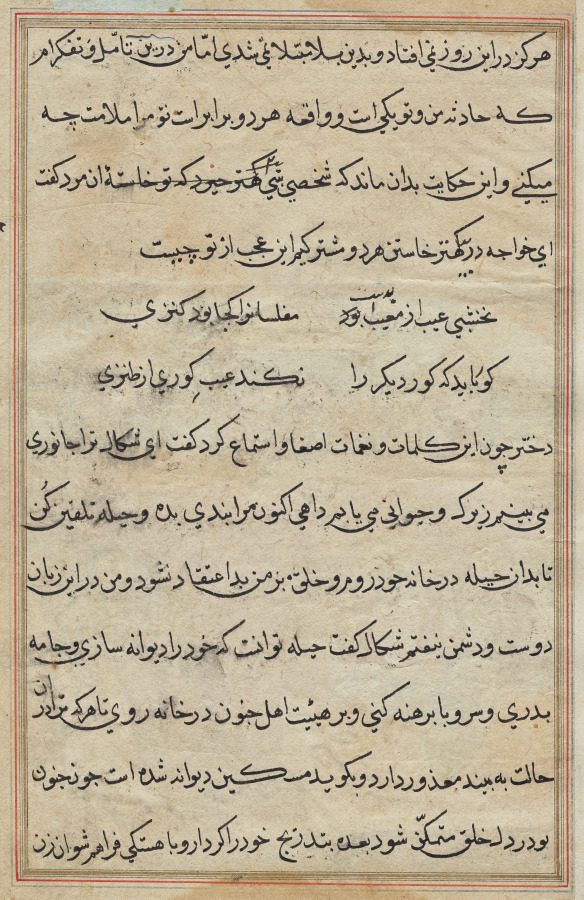 هرکز در این روز نمی افتاد و بدین بلا مبتلا نمی شدی امّا من درین تامّل و تفکرام
که حادثه من و تو یکی است و واقعه هر دو برابر است تو مرا ملامت چه
میکنی و این حکایت بدان ماند که شخصی شبی کهتر خود که تو خاستهٔ ان مرد کفت
ای خواجه در کهتر خاستن هر دو مشترکیم این عجب از تو چیست
نخشبی عیب از معیب بدست بود مفلسانرا کجا بود کنزی
کو بباید که کور دیکر را نکند عیب کوری از طنزی
دختر چون این کلمات و نغمات اصغا و استماع کرد کفت ای شکال ترا جانوری
می بینم زیرک و حیوانی می یابم داهی اکنون مرا بندی بده و حیله تلقین کُن
تا بدان حیله در خانه خود روم و خلق بر من بد اعتقاد نشود و من در این زبان
دوست و دشمن نیفتم شکال کفت حیله تو انست که خود را دیوانه سازی و جامه
بدری و سر و پا برهنه کنی و بر هیئت اهل جنون در خانه روی تا هر که ترا در ان
حالت به بیند معذور دارد و بکوید مسکین دیوانه شده است چون جنون
بو در دل خلق متمکّن شود بعده بتدریج خود را کرد ار و با هستکی فراهم شو ان زن